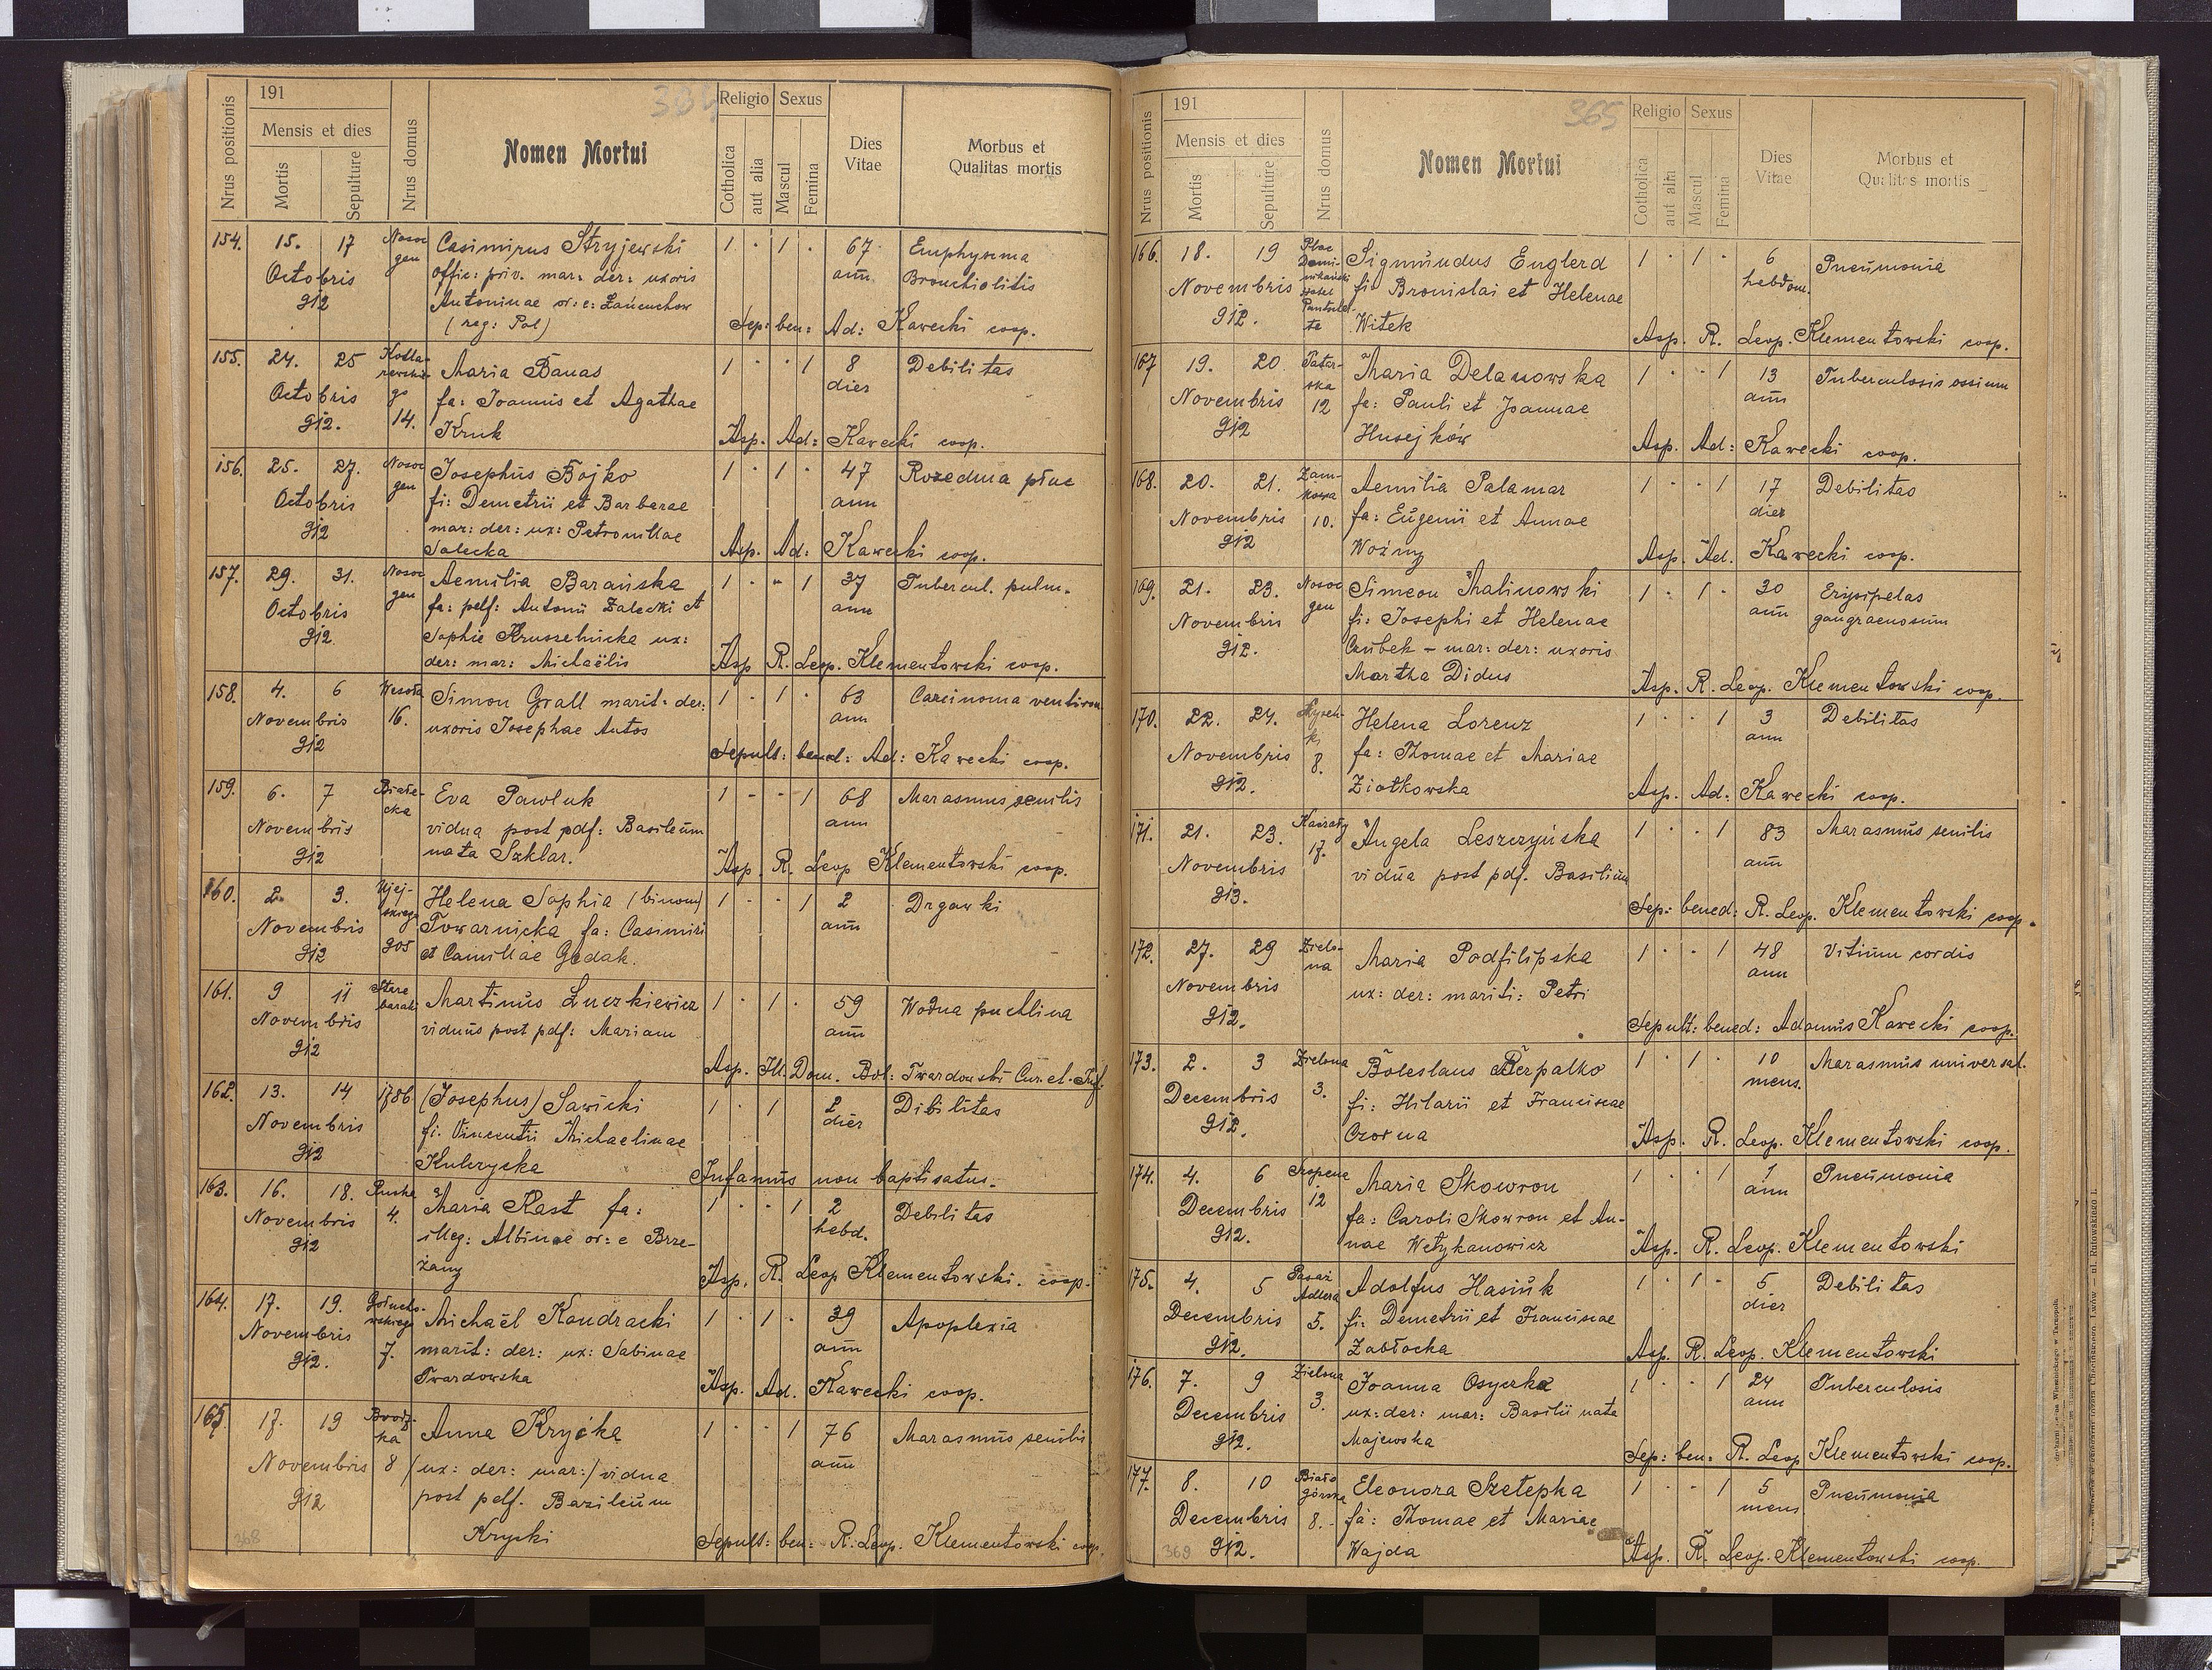 384
Nrus positionis
191
Mensis et dies
Mortis
Sepulture
Nrus domus
Nomen Mortui
Religio
Cotholica
aut alia
Sexus
Mascul
Femina
Dies Vitae
Morbus et Qualitas mortis
154. 15. 17 Nosoc Casimirus Stryjewski 1 · 1 · 67 Emphysema
gen offic: priv. mar: der: uxoris ann Bronchiolitis
Octobris Antoninae or: e: Łańcuchow
912 (reg: Pol) Sep: ben: Ad: Kawecki coop.
155. 24. 25 Maria Banas 1 · · 1 8 Debilitas
Octobris go fa: Joannis et Agathae dier
912. 14. Kruk Asp. Ad: Kawecki coop.
156. 25. 27. Nosoc Josephus Bojko 1 · 1 · 47 Rozedma płuc
gen fi: Demetrii et Barbarae ann
Octobris mar: der: ux: Petronillae
912 Salecka Asp. Ad: Kawecki coop.
157. 29. 31. Nosoc Aemilia Barańska 1 · · 1 37 Tubercul. pulm.
gen fa: pdf: Antonii Zalecki et ann
Octobris Sophie Kruszelnicka ux:
912. der: mar: Michaëlis Asp R. Leop. Klementowski coop.
158. 4. 6 Wesoła Simon Grall marit: der: 1 · 1 · 63 Carcinoma ventric
Novembris 16. uxoris Josephae Antos ann
912 Sepult: bened: Ad: Kawecki coop.
159. 6. 7 Białecka Eva Pawluk 1 - - 1 68 Marasmus senilis
Novembris vidua post pdf: Basileum ann
912 nata Szklar. Asp. R. Leop Klementowski coop.
160. 2. 3. Ujejskiego Helena Sophia (binom) 1 · · 1 2 Drgawki
Novembris Towarnicka fa: Casimiri ann
912 905 et Camillae Gedak.
161. 9 11 Stare baraki Martinus Łuczkiewicz 1 · 1 · 59 Wodna puchlina
Novembris viduus post pdf: Mariam ann
912 Asp. Ill. Dom. Bol: Twardowski Cur. et. Inf.
162. 13. 14 1786 (Josephus) Sawicki 1 · 1 2 Dibilitas
Novembris fi. Vincentii Michaelinae dier
912 Kulczycka Infanus non baptisatus.
163. 16. 18. Ruska Maria Rast fa: 1 · · 1 2 Debilitas
Novembris 4. illeg: Albinae or: e Brze- hebd.
912 żany Asp. R. Leop Klementowski. coop.
164. 17. 19. Gołuchowskiego Michaël Kondracki 1 · 1 · 39 Apoplexia
Novembris marit: der: ux: Sabinae ann
912. 7. Twardowska Asp. Ad. Kawecki coop.
165. 17. 19 Brodzka Anna Krycka 1 · · 1 76 Marasmus senilis
Novembris 8 (ux: der: mar:) vidua ann
912 post pdf. Basileum
Krycki Sepult: ben: R. Leop. Klementowski coop.
368
365
Nrus positionis
191
Mensis et dies
Mortis
Sepulture
Nrus domus
Nomen Mortui
Religio
Cotholica
aut alia
Sexus
Mascul
Femina
Dies Vitae
Morbus et Qualitas mortis
166. 18. 19 Plac Domi- Sigmundus Englerd 1 · 1 · 6 Pneumonia
Novembris nikański fi: Bronislai et Helenae hebdom.
912. Witek Asp. R. Leop. Klementowski coop.
167 19. 20 Maria Delanowska 1 · · 1 13 Tuberculosis ossium
Novembris 12 fa: Pauli et Joannae ann
912 Husejków Asp. Ad: Kawecki coop.
168. 20. 21. Zamkowa Aemilia Palamar 1 · · 1 17 Debilitas
Novembris 10. fa: Eugenii et Annae dier
912 Woźny Asp. Ad. Kawecki coop.
169. 21. 23. Nosoc Simeon Malinowski 1 · 1 · 30 Erysipelas
Novembris gen fi: Josephi et Helenae ann gangraenosum
912. Czubek - mar: der: uxoris
Martha Didus Asp. R. Leop. Klementowski coop.
170. 22. 24. Helena Lorenz 1 · · 1 3 Debilitas
Novembris 8. fa: Thomae et Mariae ann
912. Ziółkowska Asp. Ad: Kawecki coop.
171. 21. 23. 17. Angela Leszczyńska 1 · · 1 83 Marasmus senilis
Novembris vidua post pdf. Basilium ann
913. Sep: bened: R. Leop. Klementowski coop.
172. 27. 29 Zielona Maria Podfilipska 1 · · 1 48 Vitium cordis
Novembris ux: der: mariti: Petri ann
912. Sepult: bened: Adamus Kawecki coop.
173. 2. 3 Zielona Boleslaus Berpalko 1 · 1 · 10 Marasmus universal.
Decembris 3. fi: Hilarii et Franciscae mens.
912. Czorna Asp. R. Leop. Klementowski coop.
174. 4. 6 Maria Skowron 1 · · 1 1 Pneumonia
Decembris 12 fa: Caroli Skowron et An- ann
912. nae Wetykanowicz Asp. R. Leop. Klementowski
175. 4. 5 Pasaż Adlera Adolfus Hasiuk 1 · 1 · 5 Debilitas
Decembris 5. fi: Demetrii et Franciscae dier
912. Zabłocka Asp. R. Leop. Klementowski
176. 7. 9 Zielona Joanna Osyczka 1 · · 1 24 Tuberculosis
Decembris 3. ux: der: mar: Basilii nata ann
912. Majewska Sep: ben: R. Leop Klementowski coop.
177. 8. 10 Białogórska Eleonora Szelepka 1 · · 1 5 Pneumonia
Decembris 8. fa: Thomae et Mariae mens
369 912. Wajda Asp. R. Leop. Klementowski coop.